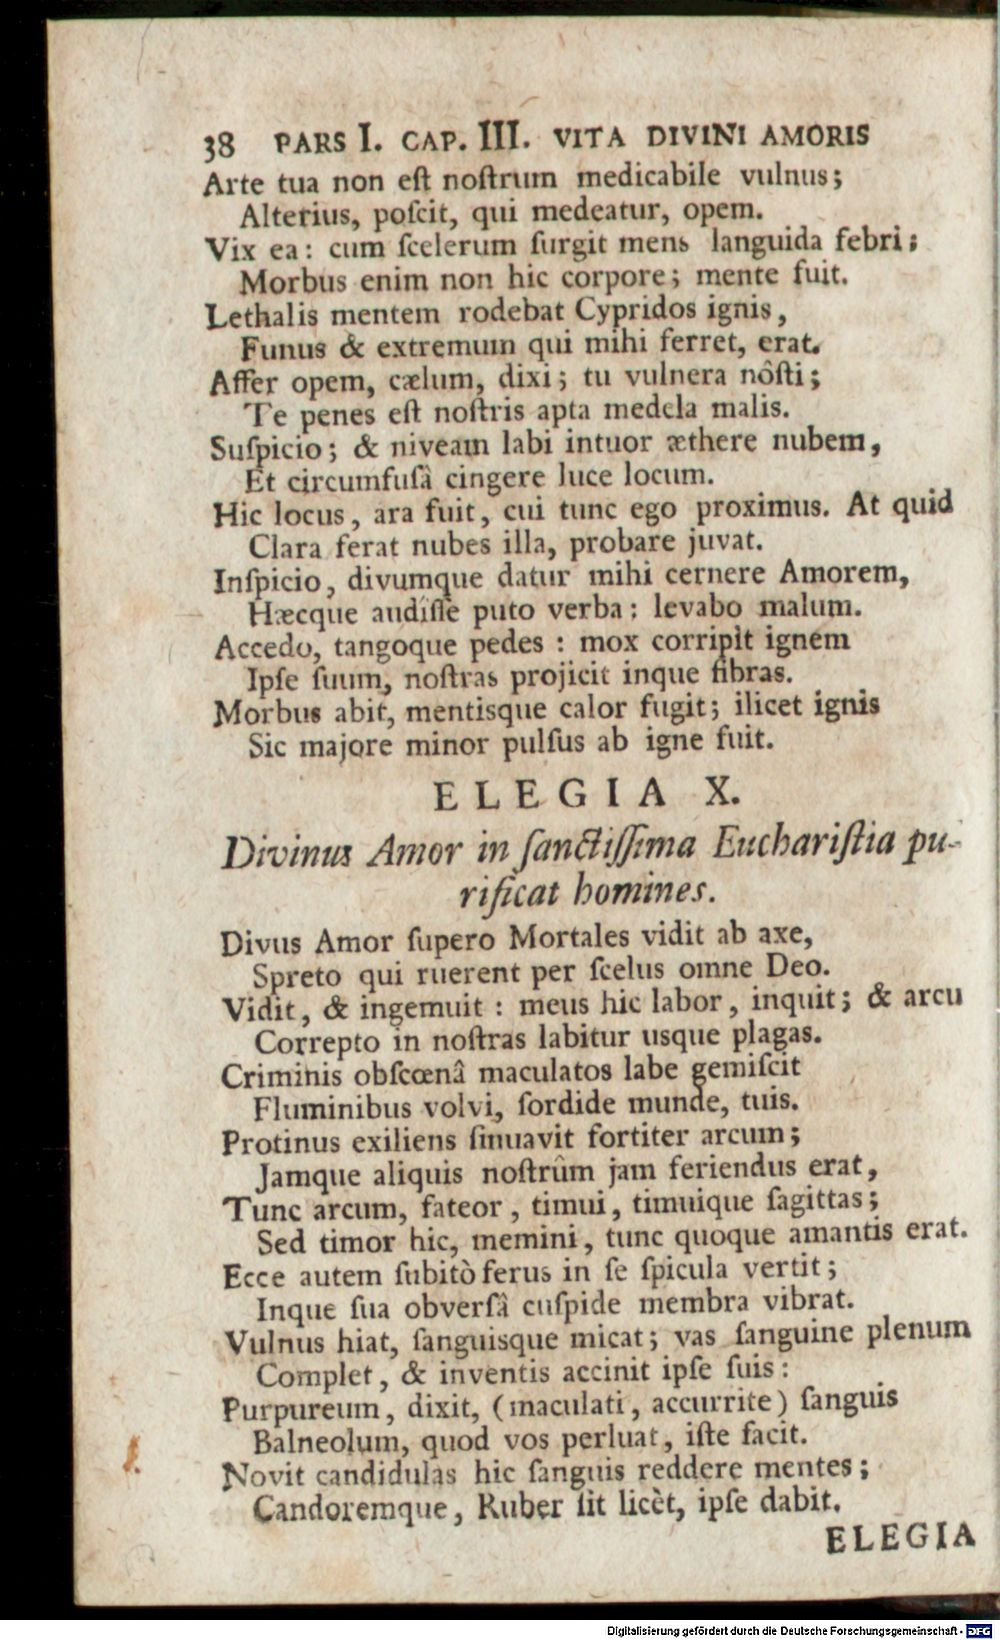 38 PARS I. CAP. III. VITA DIVINI AMORIS
Arte tua non eſt noſtrum medicabile vulnus;
Alterius, poſcit, qui medeatur, opem.
Vix ea: cum ſcelerum ſurgit mens languida febri;
Morbus enim non hic corpore; mente fuit.
Lethalis mentem rodebat Cypridos ignis,
Funus & extremum qui mihi ferret, erat.
Affer opem, cælum, dixi; tu vulnera nôſti;
Te penes eſt noſtris apta medela malis.
Suſpicio; & niveam labi intuor æthere nubem,
Et circumfuſâ cingere luce locum.
Hic locus, ara fuit, cui tunc ego proximus. At quid
Clara ferat nubes illa, probare juvat.
Inſpicio, divumque datur mihi cernere Amorem,
Hæcque audíſſe puto verba: levabo malum.
Accedo, tangoque pedes : mox corripit ignem
Ipſe ſuum, noſtras projicit inque fibras.
Morbus abit, mentisque calor fugit; ilicet ignis
Sic majore minor pulſus ab igne fuit.
ELEGIA X.
Divinus Amor in ſanctiſſima Euchariſtia pu-
rificat homines.
Divus Amor ſupero Mortales vidit ab axe,
Spreto qui ruerent per ſcelus omne Deo.
Vidit, & ingemuit : meus hic labor, inquit; & arcu
Correpto in noſtras labitur usque plagas.
Criminis obſcœnâ maculatos labe gemiſcit
Fluminibus volvi, ſordide munde, tuis.
Protinus exiliens ſinuavit fortiter arcum;
Jamque aliquis noſtrûm jam feriendus erat,
Tunc arcum, fateor, timui, timuique ſagittas;
Sed timor hic, memini, tunc quoque amantis erat.
Ecce autem ſubitò ferus in ſe ſpicula vertit;
Inque ſua obverſâ cuſpide membra vibrat.
Vulnus hiat, ſanguisque micat; vas ſanguine plenum
Complet, & inventis accinit ipſe ſuis:
Purpureum, dixit, (maculati, accurrite) ſanguis
Balneolum, quod vos perluat, iſte facit.
Novit candidulas hic ſanguis reddere mentes;
Candoremque, Ruber ſit licèt, ipſe dabit.
ELEGIA
Digitalisierung gefördert durch die Deutsche Forschungsgemeinschaft - DFG